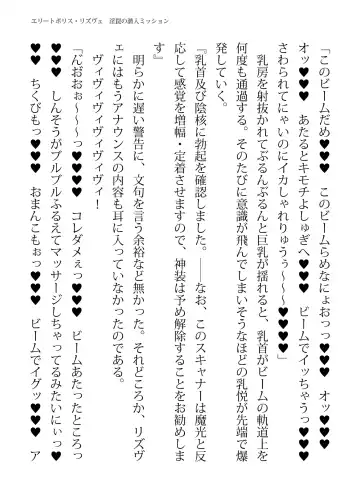 エリートポリス・リズヴェ　淫罠の潜入ミッション
「このビームだめ♥♥♥　このビームらめなにょおっっ♥♥♥　オッ♥♥♥
オッ♥♥♥　あたるとキモチよしゅぎへ♥♥♥　ビームでイッちゃうっ♥♥♥
さわられてにゃいのにイカしゃれりゅうぅ～～～♥♥♥♥」
　乳房を射抜かれてぶるんぶるんと巨乳が揺れると、乳首がビームの軌道上を
何度も通過する。そのたびに意識が飛んでしまいそうなほどの乳悦が先端で爆
発していく。
『乳首及び陰核に勃起を確認しました。――なお、このスキャナーは魔光と反
応して感覚を増幅・定着させますので、神装は予め解除することをお勧めしま
す』
　明らかに遅い警告に、文句を言う余裕など無かった。それどころか、リズヴ
ェにはもうアナウンスの内容も耳に入っていなかったのである。
　ヴィヴィヴィヴィヴィヴィ！
「んおおぉ～～～っ♥♥♥　コレダメぇっ♥♥♥　ビームあたったところっ
♥♥♥　しんそうがブルブルふるえてマッサージしちゃってるみたいにぃっ♥
♥♥　ちくびもっ♥♥♥　おまんこもぉっ♥♥♥　ビームでイグッ♥♥♥　ア